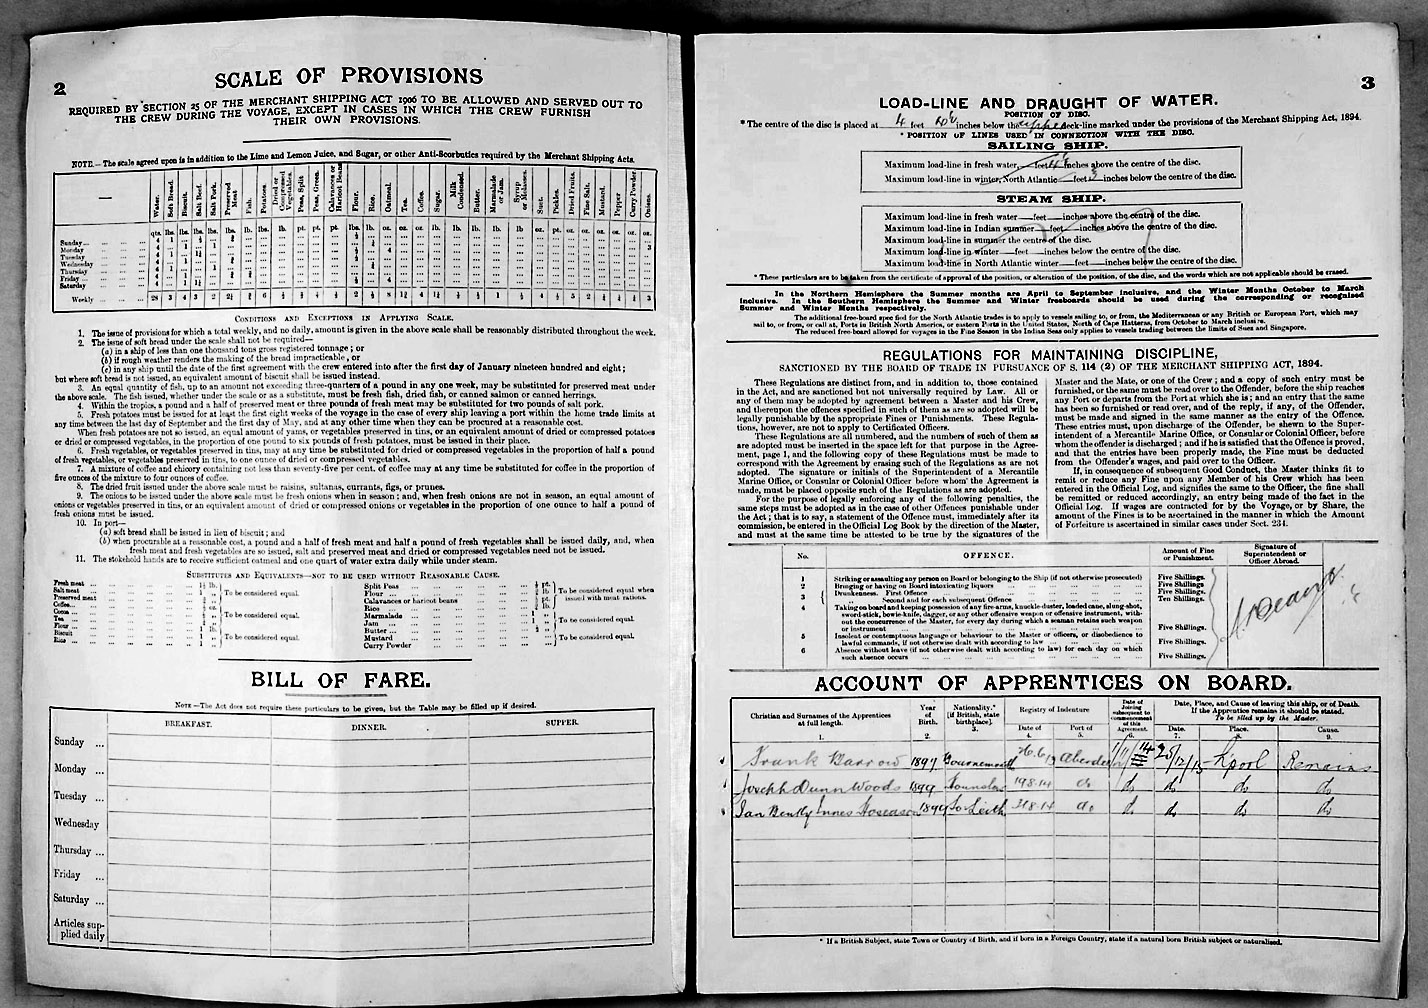 2
SCALE OF PROVISIONS
REQUIRED BY SECTION 25 OF THE MERCHANT SHIPPING ACT 1906 TO BE ALLOWED AND SERVED OUT TO
THE CREW DURING THE VOYAGE, EXCEPT IN CASES IN WHICH THE CREW FURNISH
THEIR OWN PROVISIONS.
NOTE.—The scale agreed upon is in addition to the Lime and Lemon Juice, and Sugar, or other Anti-Scorbutics required by the Merchant Shipping Acts.
Water. Soft Bread. Biscuit. Salt Beef. Salt Pork. Preserved Meat Fish. Potatoes. Dried or Compressed Vegetables. Peas, Split Peas, Green. Calavances or Haricot Beans Flour. Rice. Oatmeal. Tea. Coffee. Sugar. Milk Condensed. Butter. Marmalade or Jam. Syrup or Molasses. Suet. Pickles. Dried Fruits. Fine Salt. Mustard. Pepper Curry Powder. Onions.
Sunday
Monday
Tuesday
Wednesday
Thursday
Friday
Saturday
Weekly
CONDITIONS AND EXCEPTIONS IN APPLYING SCALE.
1. The issue of provisions for which a total weekly, and no daily, amount is given in the above scale shall be reasonably distributed throughout the week.
2. The issue of soft bread under the scale shall not be required—
(a) in a ship of less than one thousand tons gross registered tonnage; or
(b) if rough weather renders the making of the bread impracticable, or
(c) in any ship until the date of the first agreement with the crew entered into after the first day of January nineteen hundred and eight;
but where soft bread is not issued, an equivalent amount of biscuit shall be issued instead.
3. An equal quantity of fish, up to an amount not exceeding three-quarters of a pound in any one week, may be substituted for preserved meat under
the above scale. The fish issued, whether under the scale or as a substitute, must be fresh fish, dried fish, or canned salmon or canned herrings.
4. Within the tropics, a pound and a half of preserved meat or three pounds of fresh meat may be substituted for two pounds of salt pork.
5. Fresh potatoes must be issued for at least the first eight weeks of the voyage in the case of every ship leaving a port within the home trade limits at
any time between the last day of September and the first day of May, and at any other time when they can be procured at a reasonable cost.
When fresh potatoes are not so issued, an equal amount of yams, or vegetables preserved in tins, or an equivalent amount of dried or compressed potatoes
or dried or compressed vegetables, in the proportion of one pound to six pounds of fresh potatoes, must be issued in their place.
6. Fresh vegetables, or vegetables preserved in tins, may at any time be substituted for dried or compressed vegetables in the proportion of half a pound
of fresh vegetables, or vegetables preserved in tins, to one ounce of dried or compressed vegetables.
7. A mixture of coffee and chicory containing not less than seventy-five per cent. of coffee may at any time be substituted for coffee in the proportion of
five ounces of the mixture to four ounces of coffee.
8. The dried fruit issued under the above scale must be raisins, sultanas, currants, figs, or prunes.
9. The onions to be issued under the above scale must be fresh onions when in season; and, when fresh onions are not in season, an equal amount of
onions or vegetables preserved in tins, or an equivalent amount of dried or compressed onions or vegetables in the proportion of one ounce to half a pound of
fresh onions must be issued.
10. In port—
(a) soft bread shall be issued in lieu of biscuit; and
(b) when procurable at a reasonable cost, a pound and a half of fresh meat and half a pound of fresh vegetables shall be issued daily, and, when
fresh meat and fresh vegetables are so issued, salt and preserved meat and dried or compressed vegetables need not be issued.
11. The stokehold hands are to receive sufficient oatmeal and one quart of water extra daily while under steam.
SUBSTITUTES AND EQUIVALENTS—NOT TO BE USED WITHOUT REASONABLE CAUSE.
Fresh meat
Salt meat
Preserved meat
To be considered equal.
Coffee
Cocoa
Tea
To be considered equal.
Flour
Biscuit
Rice
To be considered equal.
Split Peas
Flour
Calavances or haricot beans
Rice
To be considered equal when
issued with meat rations.
Marmalade
Jam
Butter
To be considered equal.
Mustard
Curry Powder
To be considered equal.
BILL OF FARE.
NOTE—The Act does not require these particulars to be given, but the Table may be filled up if desired.
BREAKFAST. DINNER. SUPPER.
Sunday ...
Monday ...
Tuesday ...
Wednesday
Thursday ...
Friday ...
Saturday ...
Articles sup-
plied daily
3
LOAD-LINE AND DRAUGHT OF WATER.
POSITION OF DISC.
* The centre of the disc is placed at 4 feet inches below the upper deck-line marked under the provisions of the Merchant Shipping Act, 1894.
* POSITION OF LINES USED IN CONNECTION WITH THE DISC.
SAILING SHIP.
Maximum load-line in fresh water, feet inches above the centre of the disc.
Maximum load-line in winter, North Atlantic feet 3 inches below the centre of the disc.
STEAM SHIP.
Maximum load-line in fresh water —feet —inches above the centre of the disc.
Maximum load-line in Indian summer—feet —inches above the centre of the disc.
Maximum load-line in summer the centre of the disc.
Maximum load-line in winter —feet —inches below the centre of the disc.
Maximum load-line in North Atlantic winter —feet —inches below the centre of the disc.
* These particulars are to be taken from the certificate of approval of the position, or alteration of the position, of the disc, and the words which are not applicable should be erased.
In the Northern Hemisphere the Summer months are April to September inclusive, and the Winter Months October to March
inclusive. In the Southern Hemisphere the Summer and Winter freeboards should be used during the corresponding or recognised
Summer and Winter Months respectively.
The additional free-board specified for the North Atlantic trades is to apply to vessels sailing to, or from, the Mediterranean or any British or European Port, which may
sail to, or from, or call at, Ports in British North America, or eastern Ports in the United States, North of Cape Hatteras, from October to March inclusive.
The reduced free-board allowed for voyages in the Fine Season in the Indian Seas only applies to vessels trading between the limits of Suez and Singapore.
REGULATIONS FOR MAINTAINING DISCIPLINE,
SANCTIONED BY THE BOARD OF TRADE IN PURSUANCE OF S. 114 (2) OF THE MERCHANT SHIPPING ACT, 1894.
These Regulations are distinct from, and in addition to, those contained
in the Act, and are sanctioned but not universally required by Law. All or
any of them may be adopted by agreement between a Master and his Crew,
and thereupon the offences specified in such of them as are so adopted will be
legally punishable by the appropriate Fines or Punishments. These Regula-
tions, however, are not to apply to Certificated Officers.
These Regulations are all numbered, and the numbers of such of them as
are adopted must be inserted in the space left for that purpose in the Agree-
ment, page 1, and the following copy of these Regulations must be made to
correspond with the Agreement by erasing such of the Regulations as are not
adopted. The signature or initials of the Superintendent of a Mercantile
Marine Office, or Consular or Colonial Officer before whom the Agreement is
made, must be placed opposite such of the Regulations as are adopted.
For the purpose of legally enforcing any of the following penalties, the
same steps must be adopted as in the case of other Offences punishable under
the Act; that is to say, a statement of the Offence must, immediately after its
commission, be entered in the Official Log Book by the direction of the Master,
and must at the same time be attested to be true by the signatures of the
Master and the Mate, or one of the Crew; and a copy of such entry must be
furnished, or the same must be read over to the Offender, before the ship reaches
any Port or departs from the Port at which she is; and an entry that the same
has been so furnished or read over, and of the reply, if any, of the Offender,
must be made and signed in the same manner as the entry of the Offence.
These entries must, upon discharge of the Offender, be shewn to the Super-
intendent of a Mercantile Marine Office, or Consular or Colonial Officer, before
whom the offender is discharged; and if he is satisfied that the Offence is proved,
and that the entries have been properly made, the Fine must be deducted
from the Offender's wages, and paid over to the Officer.
If, in consequence of subsequent Good Conduct, the Master thinks fit to
remit or reduce any Fine upon any Member of his Crew which has been
entered in the Official Log, and signifies the same to the Officer, the fine shall
be remitted or reduced accordingly, an entry being made of the fact in the
Official Log. If wages are contracted for by the Voyage, or by Share, the
amount of the Fines is to be ascertained in the manner in which the Amount
of Forfeiture is ascertained in similar cases under Sect. 234.
No. OFFENCE. Amount of Fine or Punishment. Signature of Superintendent or Officer Abroad.
1 Striking or assaulting any person on Board or belonging to the Ship (if not otherwise prosecuted) Five Shillings.
2 Bringing or having on Board intoxicating liquors Five Shillings.
3 Drunkenness. First Offence Five Shillings.
" Second and for each subsequent Offence Ten Shillings.
4 Taking on board and keeping possession of any fire-arms, knuckle-duster, loaded cane, slung-shot,
sword-stick, bowie-knife, dagger, or any other offensive weapon or offensive instrument, with-
out the concurrence of the Master, for every day during which a seaman retains such weapon
or instrument Five Shillings.
5 Insolent or contemptuous language or behaviour to the Master or officers, or disobedience to
lawful commands, if not otherwise dealt with according to law Five Shillings.
6 Absence without leave (if not otherwise dealt with according to law) for each day on which
such absence occurs Five Shillings.
ACCOUNT OF APPRENTICES ON BOARD.
Christian and Surnames of the Apprentices at full length. 1. Year of Birth. 2. Nationality.* [if British, state birthplace]. 3. Registry of Indenture Date of 4. Port of 5. Date of Joining subsequent to commencement of this Agreement. 6. Date, Place, and Cause of leaving this ship, or of Death. If the Apprentice remains it should be stated. To be filled up by the Master. Date. 7. Place. 8. Cause. 9.
Frank Barrow 1897 Bournemouth Aberdeen 25/12/15 L'pool Remains
Joseph Dunn Woods 1899 Hounslow 19.8.14 do do do do do
Ian Innes Hoseason 1899 Leith 31.8.14 do do do do do
* If a British Subject, state Town or Country of Birth, and if born in a Foreign Country, state if a natural born British subject or naturalised.